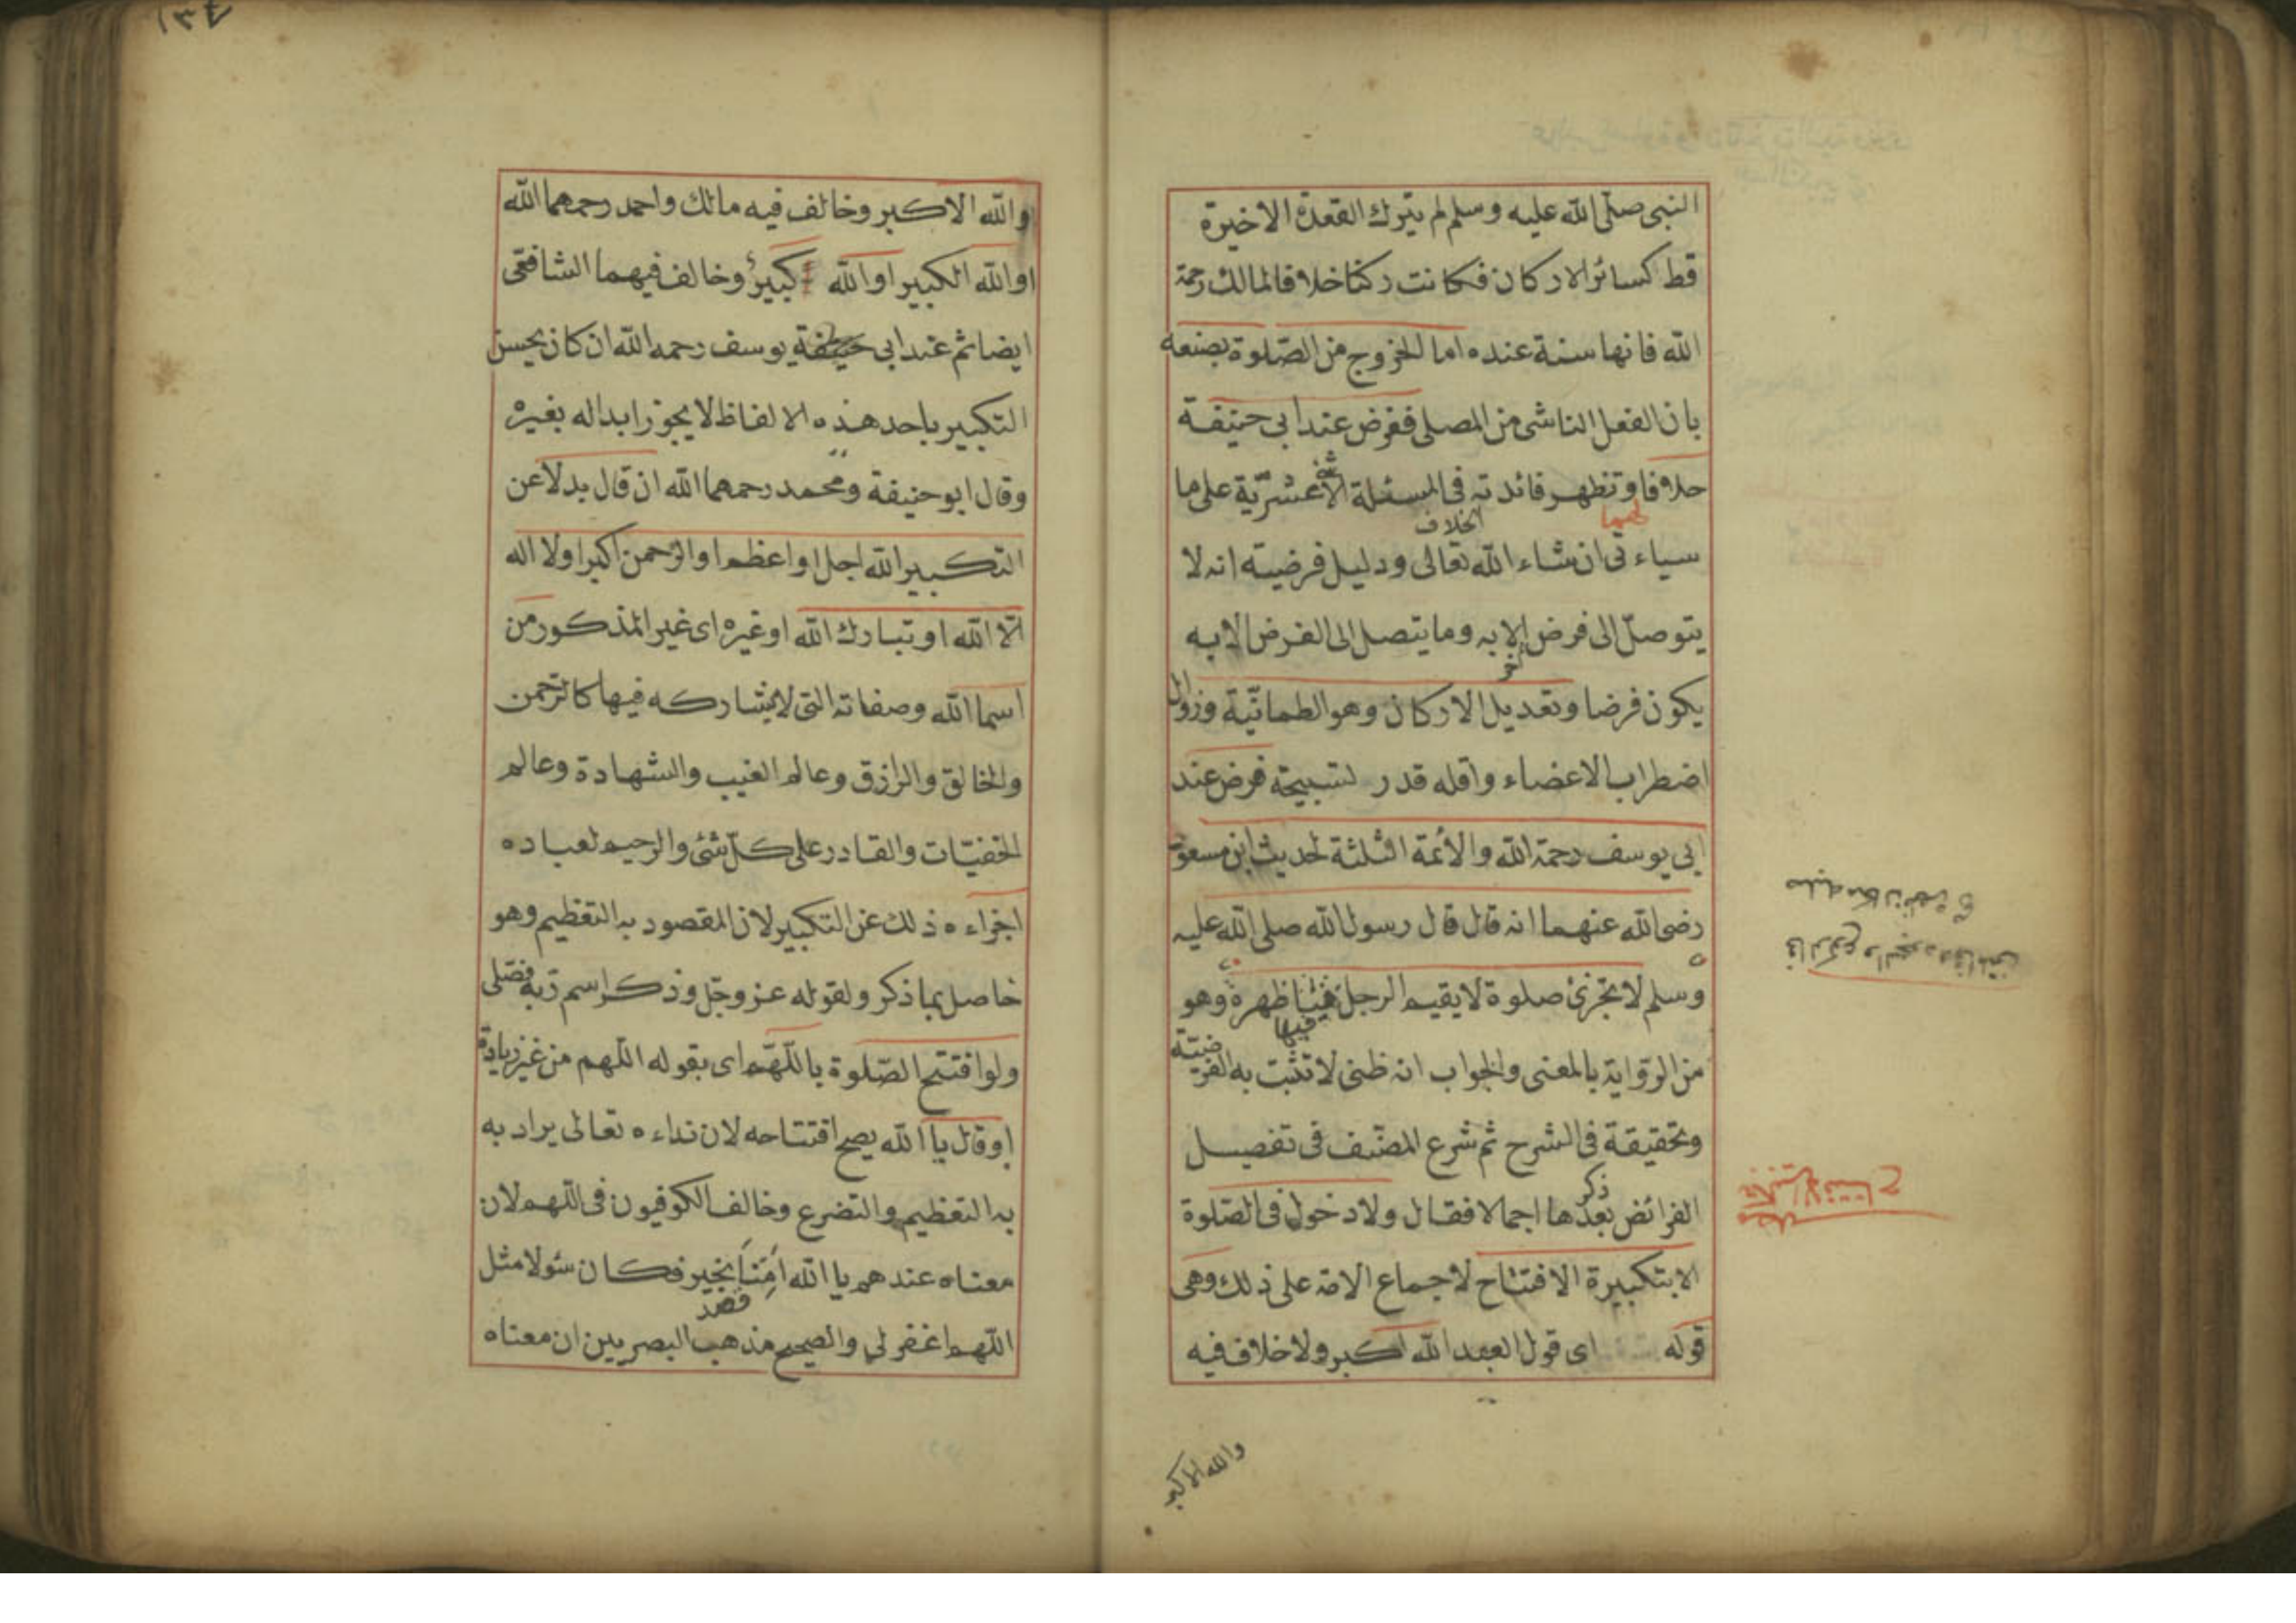 النبى صلّى الله عليه وسلم لم يترك القعدة الاخيرة
قط كسائر الاركان فكانت ركنا خلافا لمالك رحمة
الله فانها سنة عنده اما الخروج من الصّلوة بصنعه
بان الفعل الناشى من المصلى ففرض عند ابى حنيفة
خلافا وتظهر فائدته فى المسئلة الاثنى عشريّة على ما
لهما
الخلاف
سياءتى ان شاء الله تعالى ودليل فرضيته انه لا
يتوصلّ الى فرض الا به وما يتصل الى الفرض الا به
آخر
يكون فرضا وتعديل الاركان وهو الطمانيّة وزوال
اضطراب الاعضاء واقله قدر تسبيحة فرض عند
ابى يوسف رحمة الله والأئمة الثلثة لحديث ابن مسعود
رضى الله عنهما انه قال قال رسول الله صلى الله عليه
وسلم لا تجزئ صلوة لا يقيم الرجل فيها ظهره وهو
فيها
من الروّاية بالمعنى والجواب انه ظنى لا تثبت به الفرضيّة
وتحقيقة فى الشرح ثم شرع المصنّف فى تفصيل
ذكر
الفرائض بعد ها اجمالا فقال ولا دخول فى الصّلوة
الا بتكبيرة الافتتاح لاجماع الامة على ذلك وهى
قوله اى قول العبد الله اكبر ولا خلاف فيه
والله الاكبر
فى الركوع والسجود
تكبيرة الافتتاح
والله الاكبر وخالف فيه مالك واحمد رحمهما الله
او الله الكبير او الله كبير وخالف فيهما الشافعّى
ايضا ثم عند ابى يوسف رحمه الله ان كان يحسن
التكبير باحد هذه الالفاظ لا يجوز ابداله بغيره
وقال ابو حنيفة ومحمد رحمهما الله ان قال بدلا عن
التكبير الله اجل او اعظم او الرحمن اكبر او لا اله
الّا الله او تبارك الله او غيره اى غير المذكور من
اسما الله وصفاته التى لا يشاركه فيها كالرّحمن
والخالق والرازق وعالم الغيب والشهادة وعالم
الخفيّات والقادر على كلّ شئ والرحيم لعباده
اجزاءه ذلك عن التكبير لان المقصود به التعظيم وهو
حاصل بما ذكر ولقوله عز وجّل وذكر اسم ربّه فصّلى
ولو افتتح الصّلوة باللّهمّ اى بقوله اللهم من غير زيادة
او قال يا الله يصح افتتاحه لان نداءه تعالى يراد به
به التعظيم والتضرع وخالف الكوفيون فى اللهم لان
معناه عندهم يا الله اُمّنَا بخير فكان سئولا مثل
قصد
اللهم اغفر لي والصحيح مذهب البصريين ان معناه